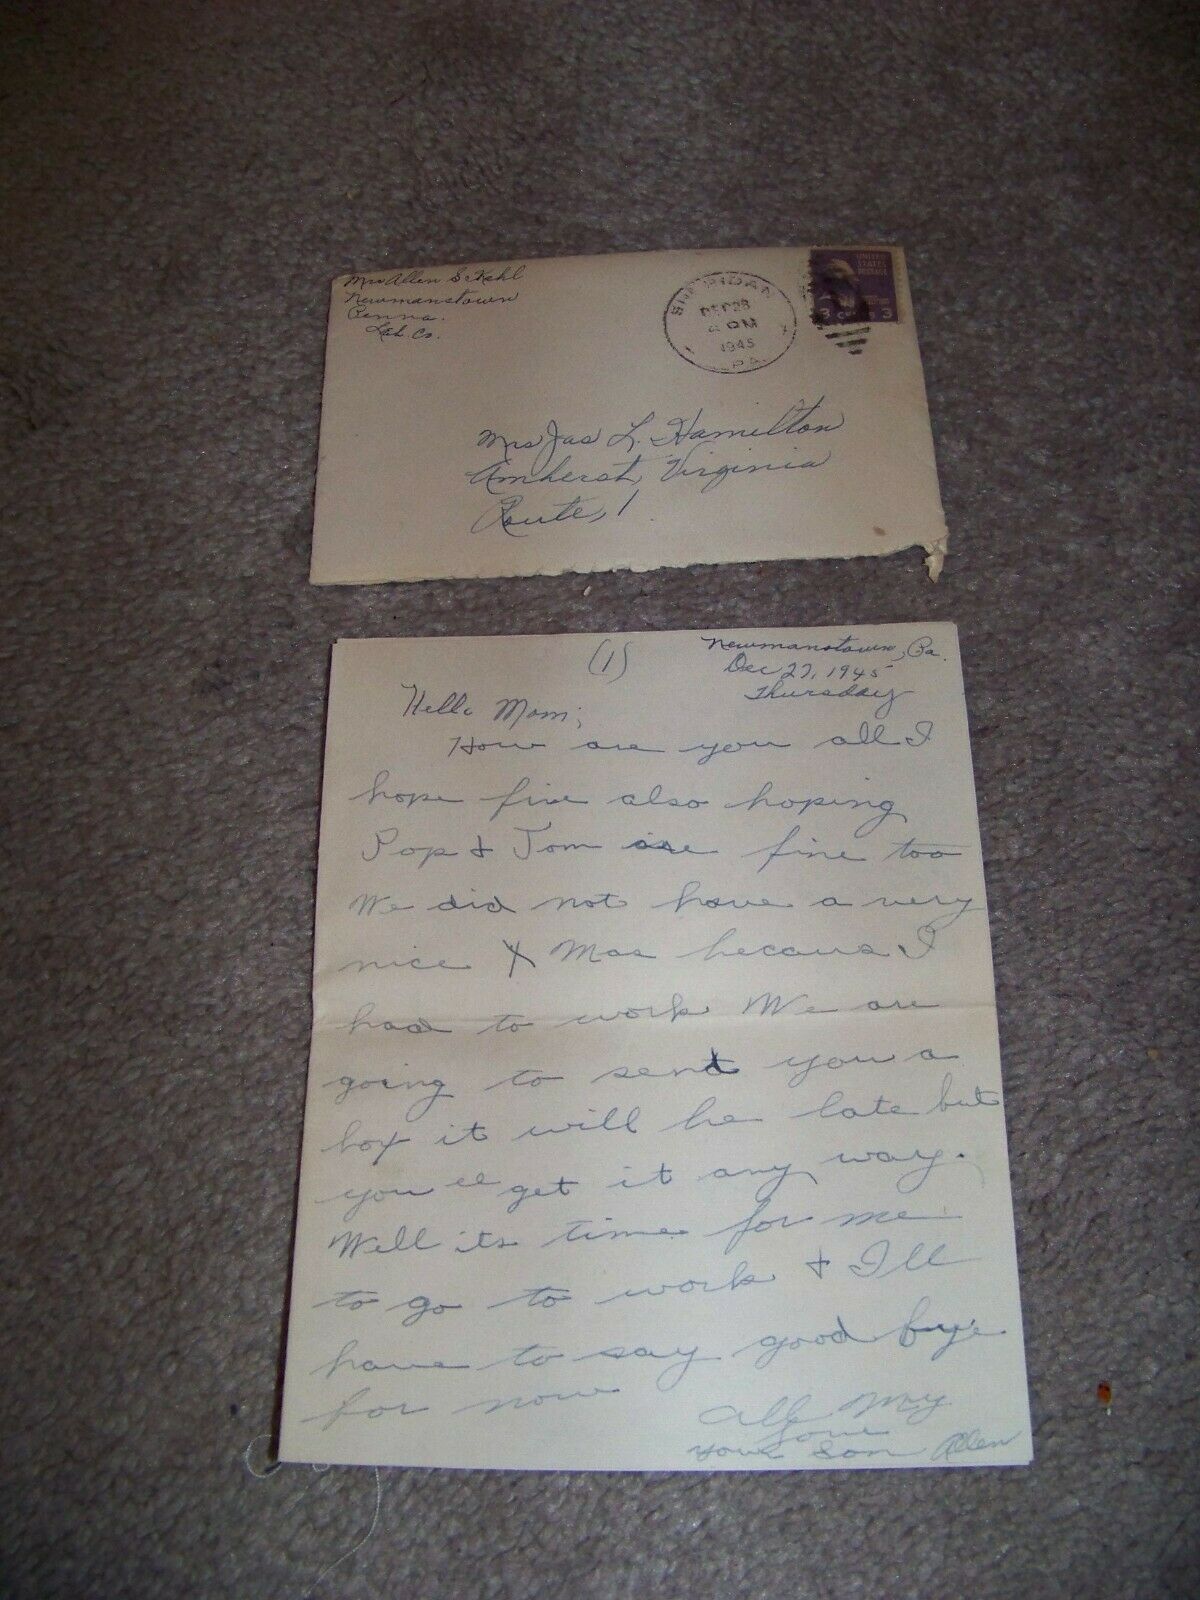 Mrs Allen S. Kehl
Newmanstown
Penna.
Leb. Co.
SHERIDAN
DEC 28
PM
1945
PA.
UNITED
STATES
POSTAGE
3 CENTS 3
Mrs Jas L. Hamilton
Amherst, Virginia
Route, 1
(1)
Newmanstown, Pa.
Dec 27, 1945
Thursday
Hello Mom;
How are you all I
hope fine also hoping
Pop & Tom are fine too
We did not have a very
nice X Mas becaus I
had to work We are
going to send you a
box it will be late but
you'll get it any way.
Well its time for me
to go to work & I'll
have to say good bye
for now
All My
Love
Your Son Allen